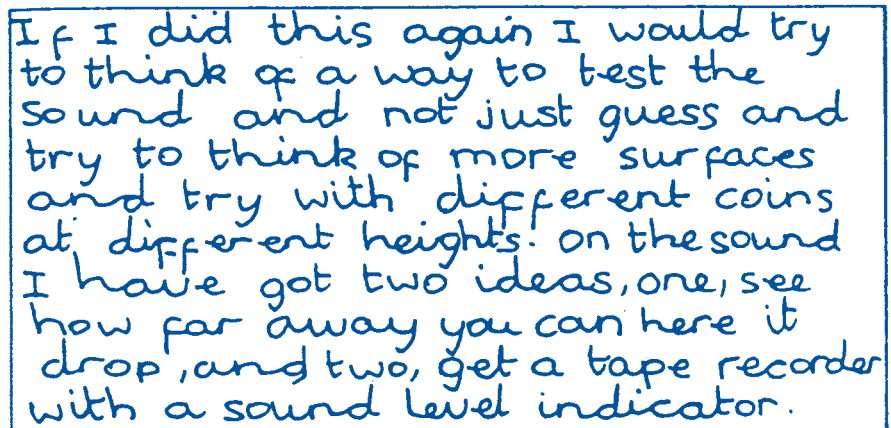 If I did this again I would try
to think of a way to test the
sound and not just guess and
try to think of more surfaces
and try with different coins
at different heights. on the sound
I have got two ideas, one, see
how far away you can here it
drop, and two, get a tape recorder
with a sound level indicator.